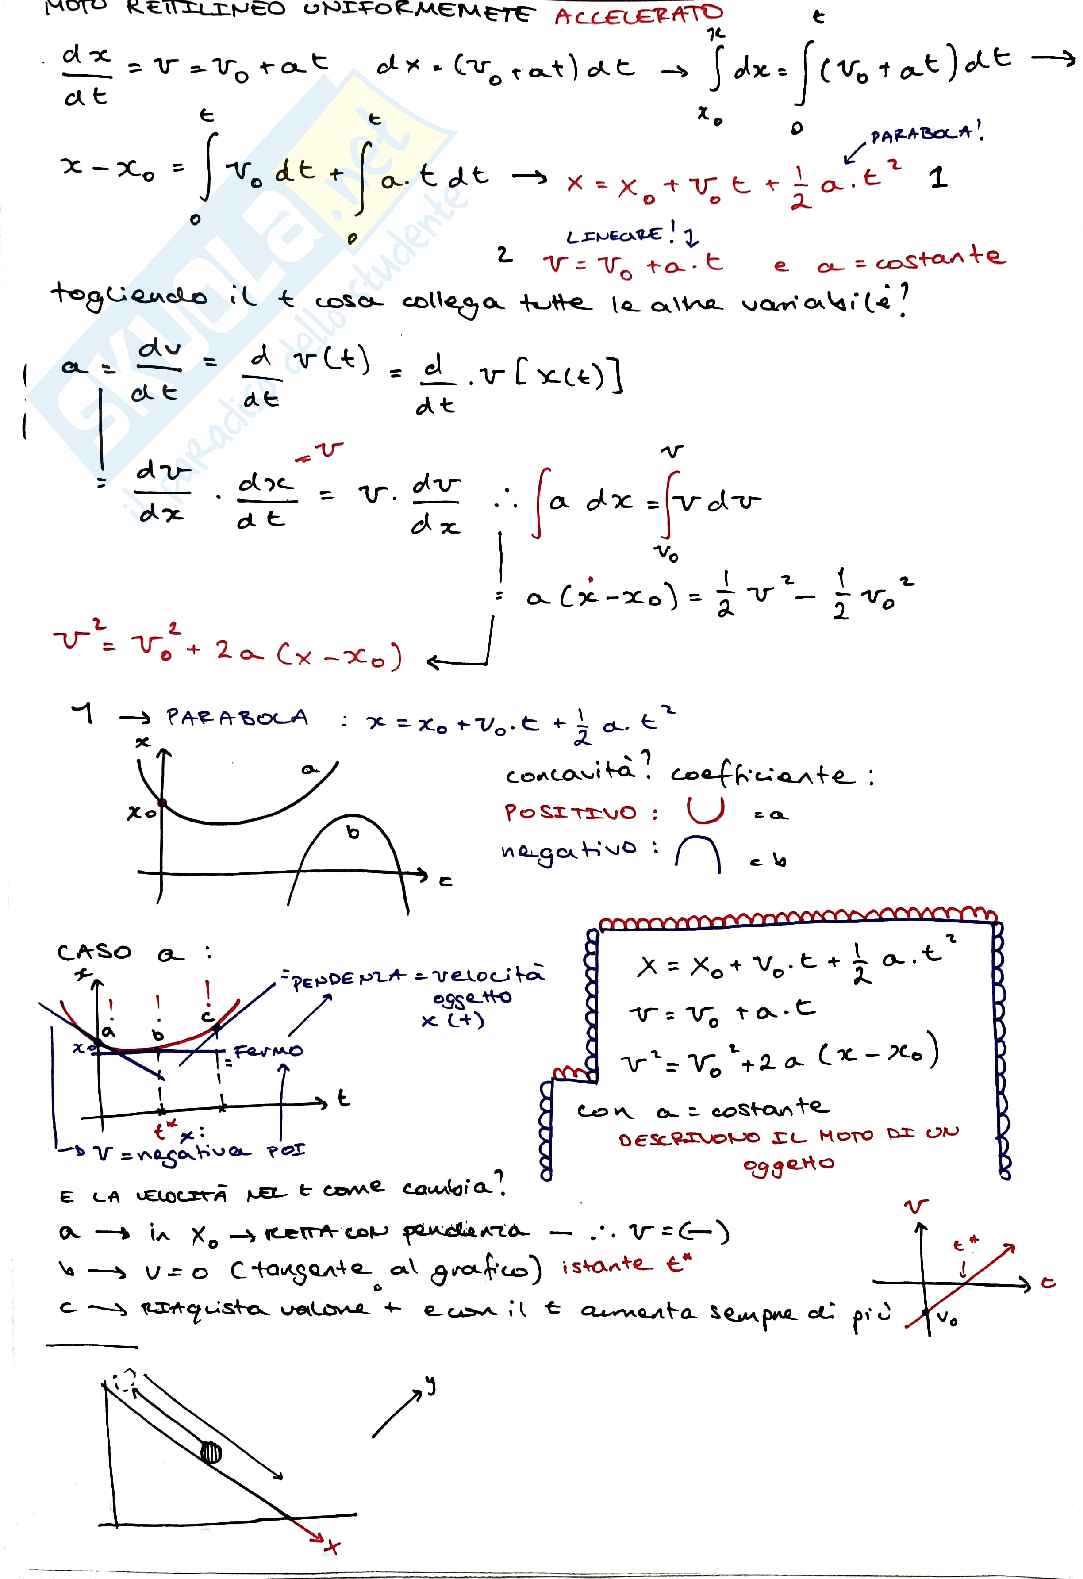 MOTO RETTILINEO UNIFORMEMETE ACCELERATO
dx/dt = v = v₀ + at   dx = (v₀ + at) dt → ∫ₓ₀ˣ dx = ∫₀ᵗ (v₀ + at) dt →
x - x₀ = ∫₀ᵗ v₀ dt + ∫₀ᵗ a·t dt → x = x₀ + v₀ t + ½ a·t² 1
PARABOLA!
LINEARE!
2 v = v₀ + a·t e a = costante
togliendo il t cosa collega tutte le altre variabili?
a = dv/dt = d/dt v(t) = d/dt · v[x(t)]
= dv/dx · dx/dt = v · dv/dx ∴ ∫ a dx = ∫ᵥ₀ᵛ v dv
= v
= a(x - x₀) = ½ v² - ½ v₀²
v² = v₀² + 2a (x - x₀)
1 → PARABOLA : x = x₀ + v₀·t + ½ a·t²
x
a
x₀
b
t
concavità? coefficiente :
POSITIVO : = a
negativo : = b
CASO a :
x
! ! !
a b c
x₀
= PENDENZA = velocità
oggetto
x(t)
= Fermo
t
t* x:
→ v = negativa POI
x = x₀ + v₀·t + ½ a·t²
v = v₀ + a·t
v² = v₀² + 2a (x - x₀)
con a = costante
DESCRIVONO IL MOTO DI UN
oggetto
E LA VELOCITÀ NEL t come cambia?
a → in x₀ → RETTA CON pendenza - ∴ v = (-)
b → v = 0 (tangente al grafico) istante t*
c → RIAcquista valore + e con il t aumenta sempre di più
v
t*
t
v₀
y
x
SKUOLA.net
il paradiso dello studente